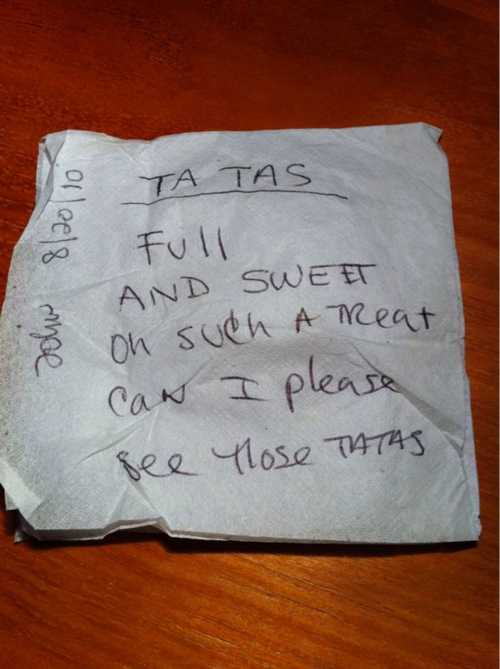 TA TAS
Full
AND SWEET
Oh such A Treat
can I please
see those TATAS
John 8/20/10